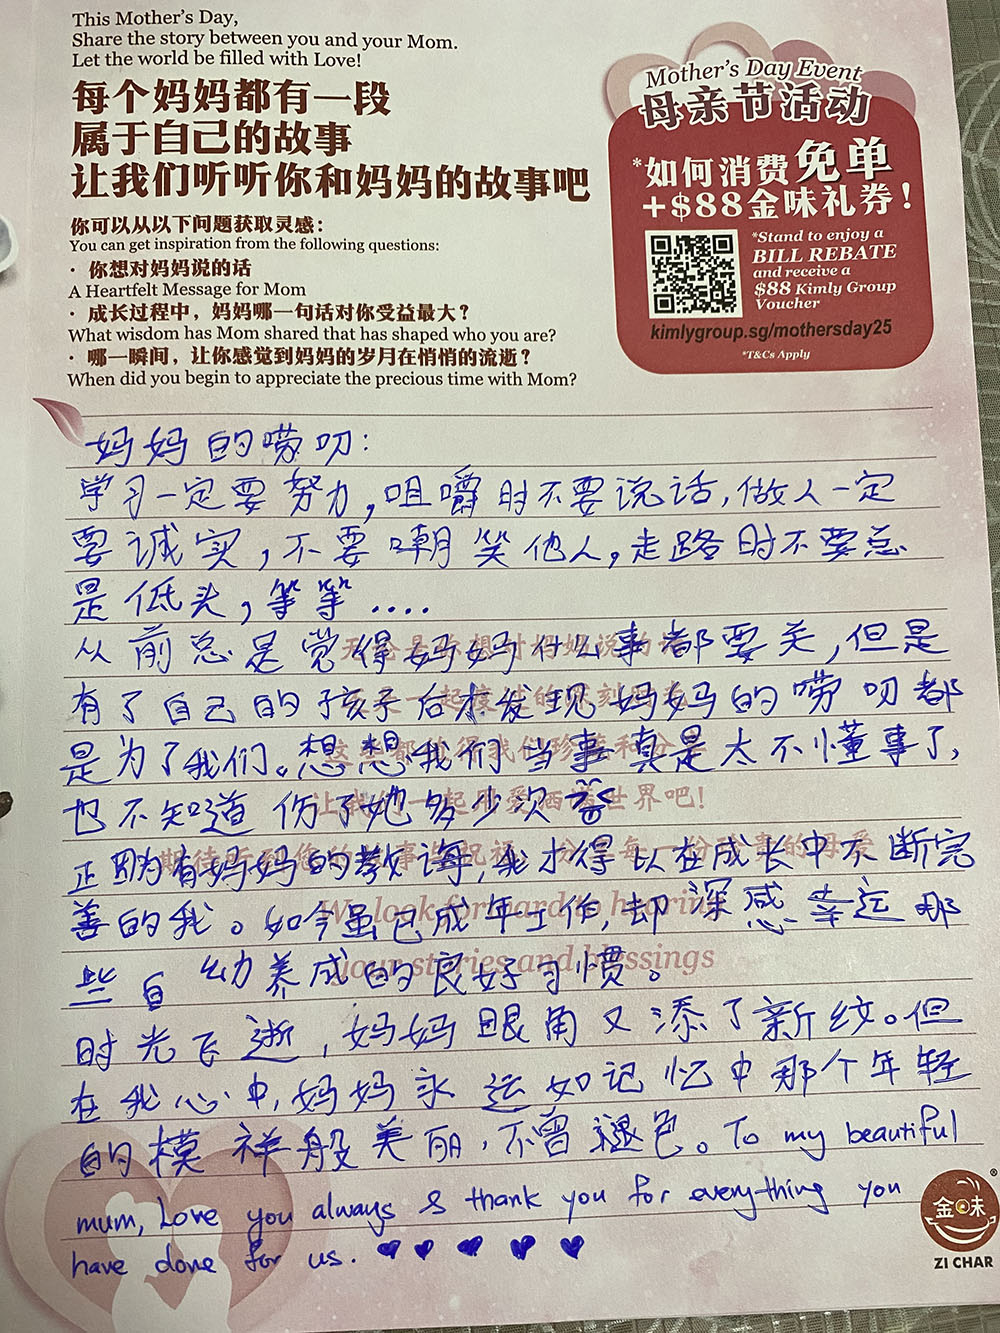 This Mother's Day,
Share the story between you and your Mom.
Let the world be filled with Love!
每个妈妈都有一段
属于自己的故事
让我们听听你和妈妈的故事吧
你可以从以下问题获取灵感：
You can get inspiration from the following questions:
· 你想对妈妈说的话
A Heartfelt Message for Mom
· 成长过程中，妈妈哪一句话对你受益最大？
What wisdom has Mom shared that has shaped who you are?
· 哪一瞬间，让你感觉到妈妈的岁月在悄悄的流逝？
When did you begin to appreciate the precious time with Mom?
Mother's Day Event
母亲节活动
*如何消费免单
+$88金味礼券！
*Stand to enjoy a
BILL REBATE
and receive a
$88 Kimly Group
Voucher
kimlygroup.sg/mothersday25
*T&Cs Apply
妈妈的唠叨：
学习一定要努力，咀嚼时不要说话，做人一定
要诚实，不要嘲笑他人，走路时不要总
是低头，等等....
从前总是觉得妈妈什么事都要关，但是
有了自己的孩子后才发现妈妈的唠叨都
是为了我们。想想我们当事真是太不懂事了，
也不知道伤了她多少次
正因为有妈妈的教诲，我才得以在成长中不断完
善的我。如今虽已成年工作，却深感幸运那
些自幼养成的良好习惯。
时光飞逝，妈妈眼角又添了新纹。但
在我心中，妈妈永远如记忆中那个年轻
的模样般美丽，不曾褪色。To my beautiful
mum, Love you always & thank you for everything you
have done for us. ♥ ♥ ♥ ♥ ♥
让我们一起用爱洒满世界吧！
We look forward to hearing
your stories and blessings
金味
®
ZI CHAR